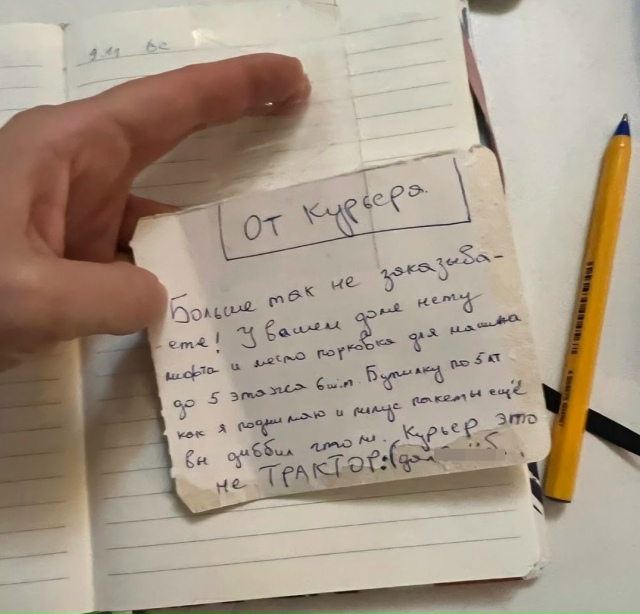 9.11 Вс
От Курьера.
Больше так не заказыва-
ете! У вашем доме нету
лифта и место порковка для машина
до 5 этажа 6 шт. Бутилку по 5 лт
как я поднимаю и плюс пакеты ещё
вы диббил штоли. Курьер это
не ТРАКТОР:(